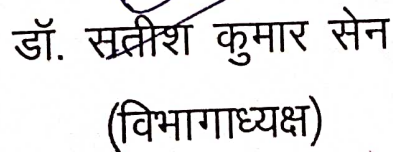 डॉ. सतीश कुमार सेन
(विभागाध्यक्ष)